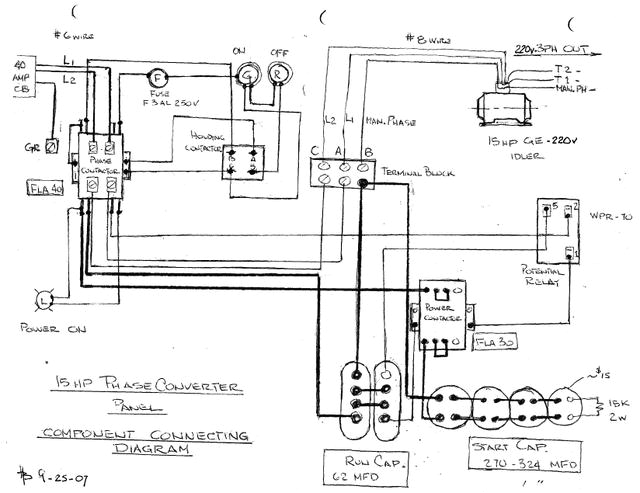 #6 WIRE
40
AMP
CB
L1
L2
GR
F
FUSE
F 3 AL 250V
ON
OFF
G
R
HOLDING
CONTACTOR
PHASE
CONTACTOR
FLA 40
L
POWER ON
#8 WIRE
220V. 3PH OUT
T2 -
T1 -
MAN. PH -
15 HP GE - 220V
IDLER
L2
L1
MAN. PHASE
C A B
TERMINAL BLOCK
5 2
1
WPR-70
POTENTIAL
RELAY
POWER
CONTACTOR
FLA 30
15 HP PHASE CONVERTER
PANEL
COMPONENT CONNECTING
DIAGRAM
9-25-07
RUN CAP.
62 MFD
START CAP.
270 - 324 MFD
~$15
15K
2W